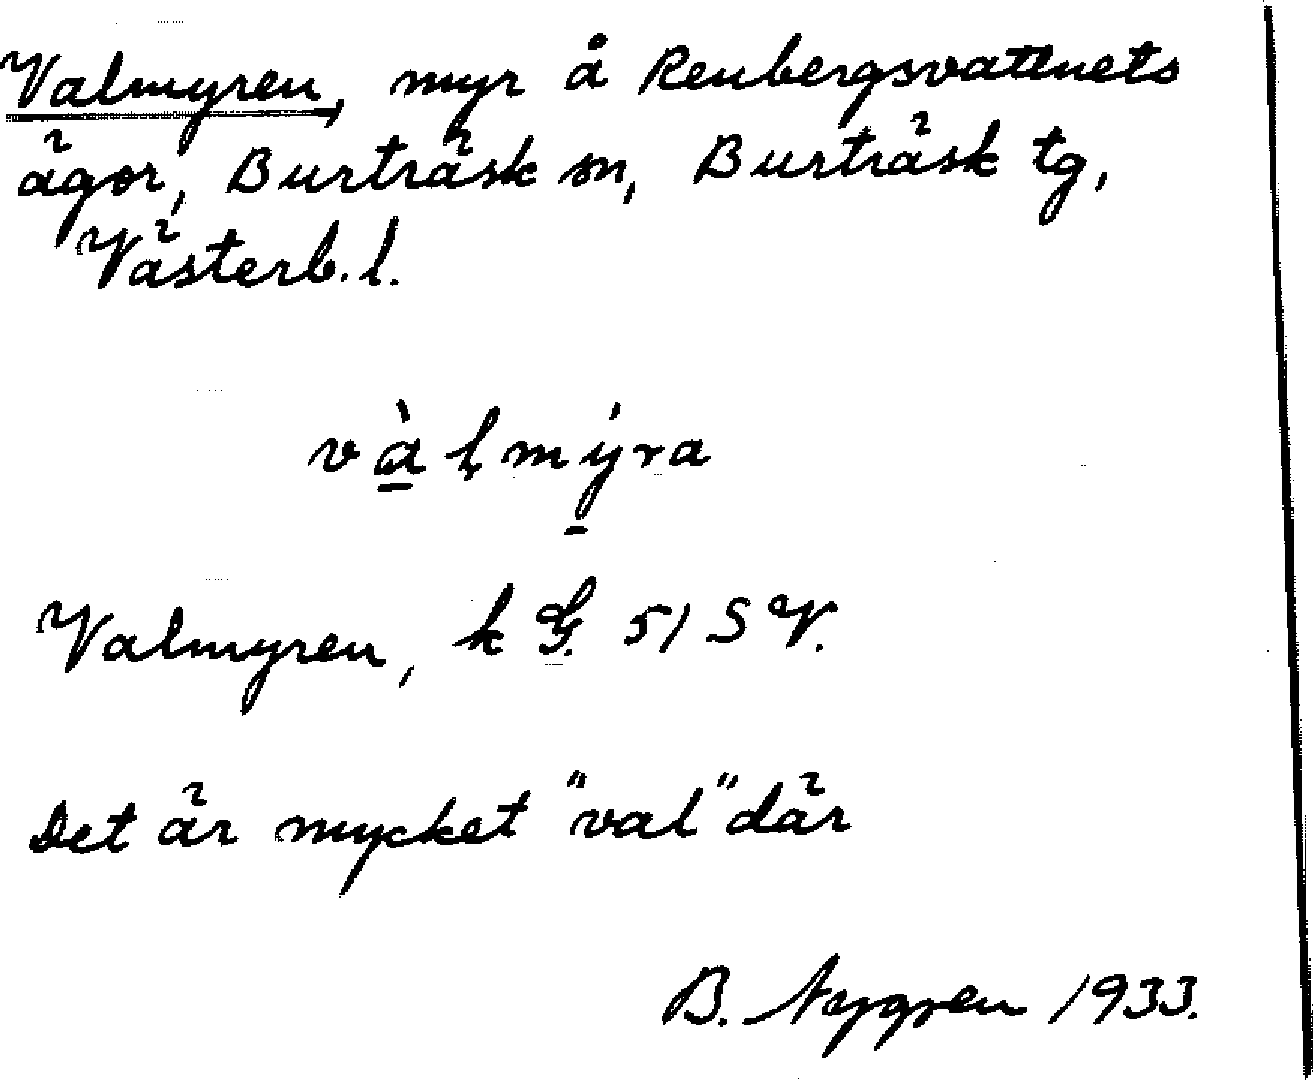 Valmyren, myr å Renbergsvattnets
ägor, Burträsk sn, Burträsk tg,
Västerb. l.
vàḷmýra
Valmyren, k G. 51 SV.
Det är mycket "val" där
B. Nygren 1933.